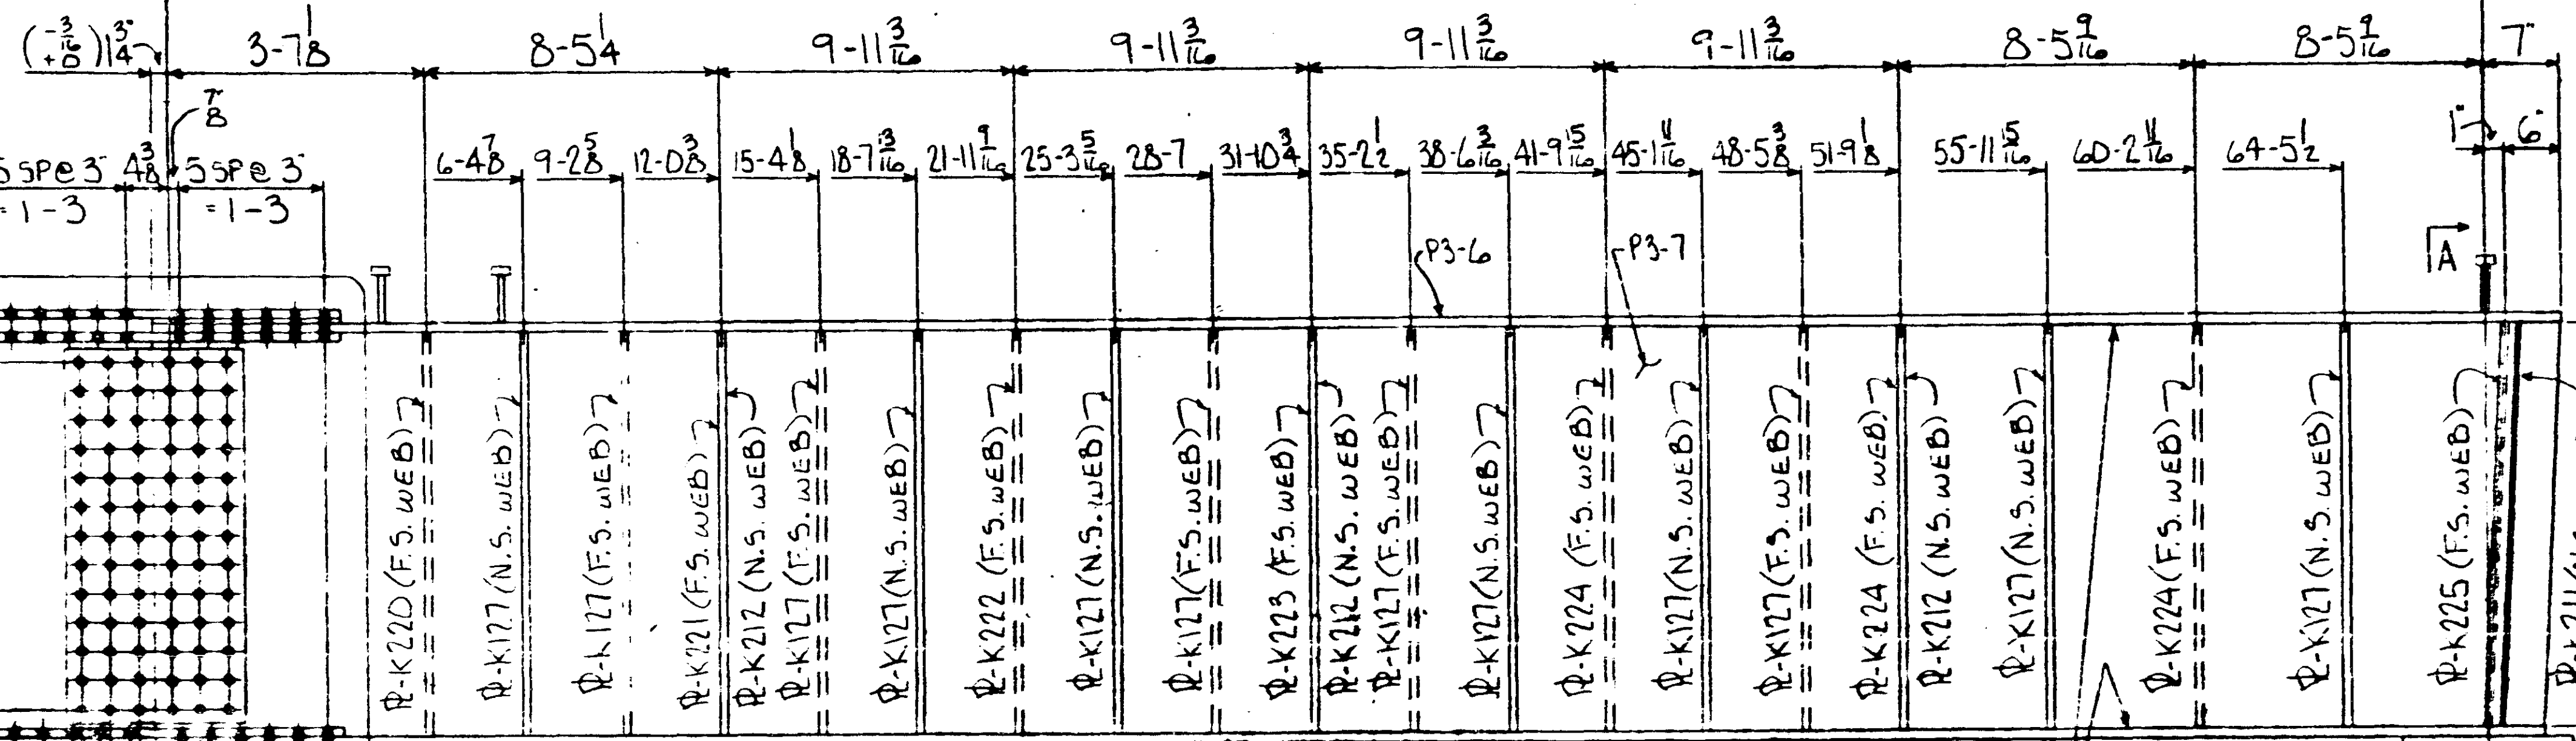 (-3/16 +0) 1 3/4" 3-7 1/8 8-5 1/4 9-11 3/16 9-11 3/16 9-11 3/16 9-11 3/16 8-5 9/16 8-5 9/16 7"
7/8"
5 SP@ 3" 4 3/8 5 SP@ 3" 6-4 7/8 9-2 5/8 12-0 3/8 15-4 1/8 18-7 13/16 21-11 9/16 25-3 5/16 28-7 31-10 3/4 35-2 1/2 38-6 3/16 41-9 15/16 45-1 11/16 48-5 3/8 51-9 1/8 55-11 15/16 60-2 11/16 64-5 1/2 1" 6"
= 1-3 = 1-3
P3-6 P3-7 A
PL-K220 (F.S. WEB)
PL-K127 (N.S. WEB)
PL-K127 (F.S. WEB)
PL-K221 (F.S. WEB)
PL-K212 (N.S. WEB)
PL-K127 (F.S. WEB)
PL-K127 (N.S. WEB)
PL-K222 (F.S. WEB)
PL-K127 (N.S. WEB)
PL-K127 (F.S. WEB)
PL-K223 (F.S. WEB)
PL-K212 (N.S. WEB)
PL-K127 (F.S. WEB)
PL-K127 (N.S. WEB)
PL-K224 (F.S. WEB)
PL-K127 (N.S. WEB)
PL-K127 (F.S. WEB)
PL-K224 (F.S. WEB)
PL-K212 (N.S. WEB)
PL-K127 (N.S. WEB)
PL-K224 (F.S. WEB)
PL-K127 (N.S. WEB)
PL-K225 (F.S. WEB)